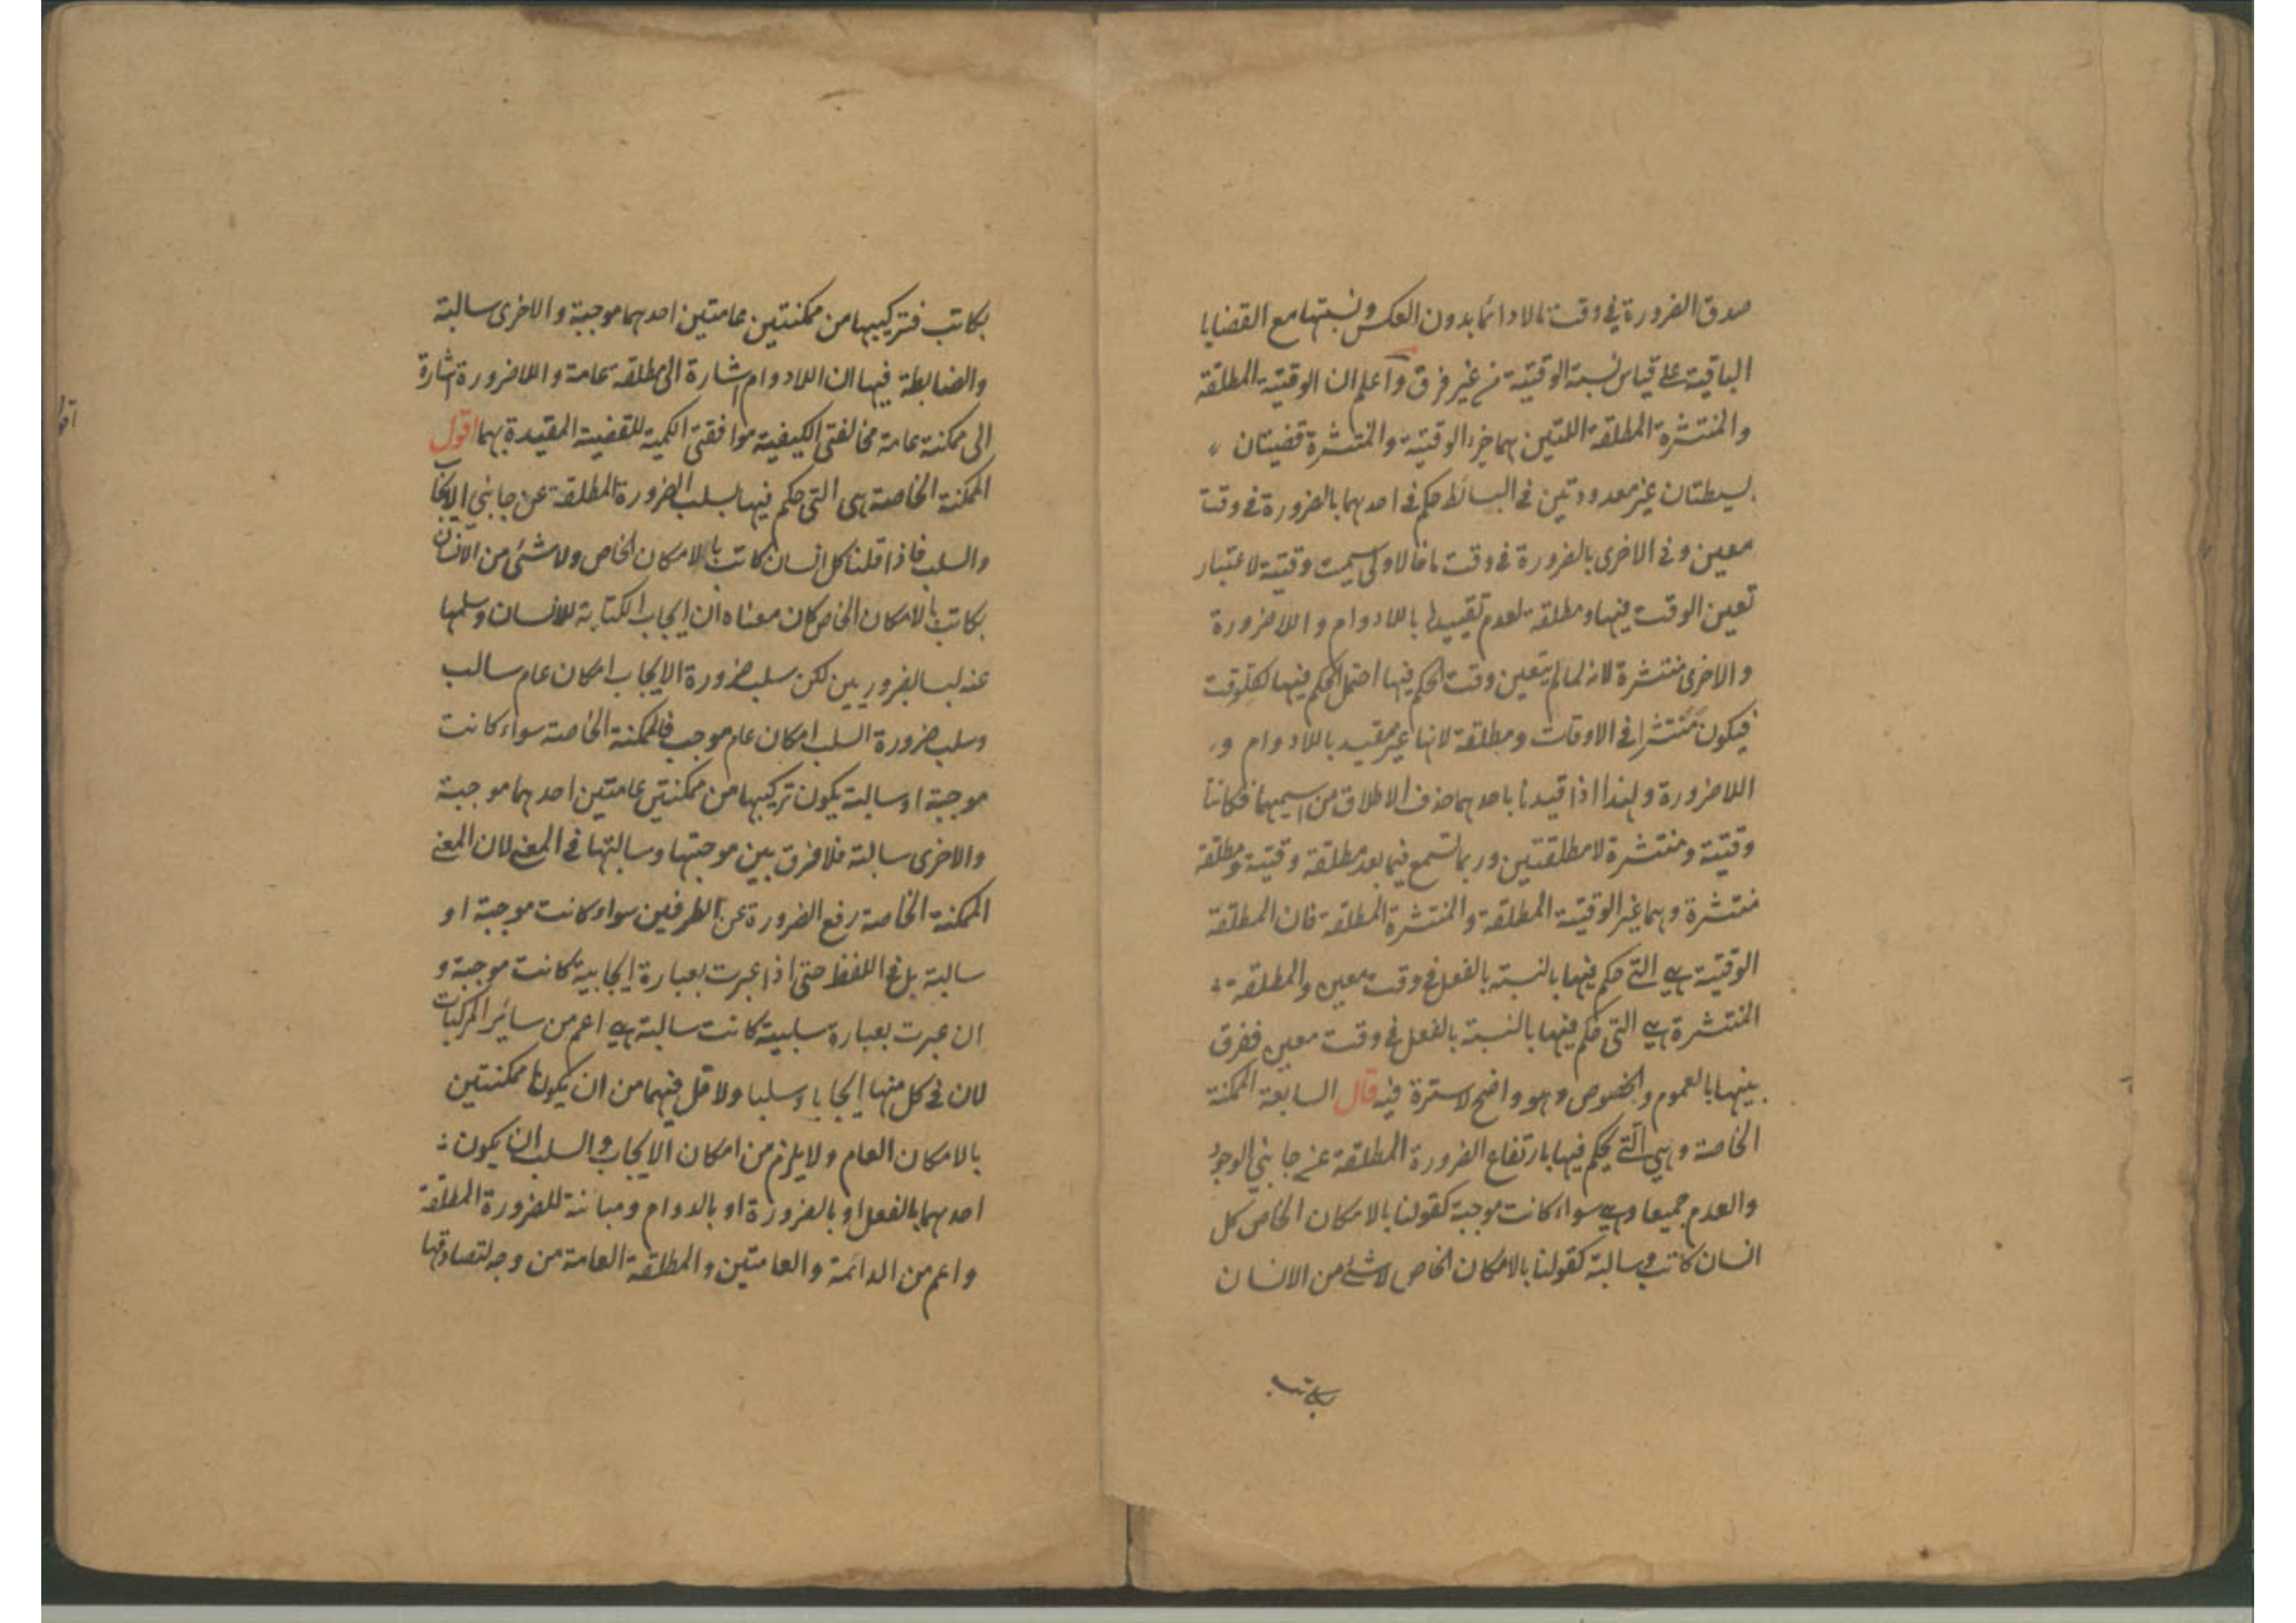 صدق الضرورة في وقت ما لا دائما بدون العكس ونسبتها مع القضايا
الباقية على قياس نسبة الوقتية من غير فرق واعلم ان الوقتية المطلقة
والمنتشرة المطلقة اللتين هما جزء الوقتية والمنتشرة قضيتان
بسيطتان غير معدودتين في البسائط حكم في احديهما بالضرورة في وقت
معين وفي الاخرى بالضرورة في وقت ما فالاولى سميت وقتية لاعتبار
تعين الوقت فيها ومطلقة لعدم تقييدها باللادوام واللاضرورة
والاخرى منتشرة لانه لما لم يتعين وقت الحكم فيها احتمل الحكم فيها لكل وقت
فيكون منتشرا في الاوقات ومطلقة لانها غير مقيد باللادوام و
اللاضرورة ولهذا اذا قيدنا باحديهما حذف الاطلاق من اسميهما فكانتا
وقتية ومنتشرة لا مطلقتين وربما تسمع فيما بعد مطلقة وقتية ومطلقة
منتشرة وهما غير الوقتية المطلقة والمنتشرة المطلقة فان المطلقة
الوقتية هي التي حكم فيها بالنسبة بالفعل في وقت معين والمطلقة
المنتشرة هي التي حكم فيها بالنسبة بالفعل في وقت معين ففرق
بينهما بالعموم والخصوص وهو واضح لا سترة فيه قال السابعة الممكنة
الخاصة وهي التي يحكم فيها بارتفاع الضرورة المطلقة عن جانبي الوجود
والعدم جميعا وهي سواء كانت موجبة كقولنا بالامكان الخاص كل
انسان كاتب وسالبة كقولنا بالامكان الخاص لا شئ من الانسان
بكاتب
بكاتب فتركيبها من ممكنتين عامتين احديهما موجبة والاخرى سالبة
والضابطة فيها ان اللادوام اشارة الى مطلقة عامة واللاضرورة اشارة
الى ممكنة عامة مخالفتي الكيفية موافقتي الكمية للقضية المقيدة بهما اقول
الممكنة الخاصة هى التى حكم فيها بسلب الضرورة المطلقة عن جانبي الايجاب
والسلب فاذا قلنا كل انسان كاتب بالامكان الخاص ولا شئ من الانسان
بكاتب بالامكان الخاص كان معناه ان ايجاب الكتابة للانسان وسلبها
عنه ليسا بضروريين لكن سلب ضرورة الايجاب امكان عام سالب
وسلب ضرورة السلب امكان عام موجب فالممكنة الخاصة سواء كانت
موجبة او سالبة يكون تركيبها من ممكنتين عامتين احديهما موجبة
والاخرى سالبة فلا فرق بين موجبتها وسالبتها في المعنى لان المعنى
الممكنة الخاصة رفع الضرورة عن الطرفين سواء كانت موجبة او
سالبة بل في اللفظ حتى اذا عبرت بعبارة ايجابية كانت موجبة و
ان عبرت بعبارة سلبية كانت سالبة هي اعم من سائر المركبات
لان في كل منها ايجابا وسلبا ولا اقل فيهما من ان يكونا ممكنتين
بالامكان العام ولا يلزم من امكان الايجاب والسلب ان يكون
احديهما بالفعل او بالضرورة او بالدوام ومباينة للضرورة المطلقة
واعم من الدائمة والعامتين والمطلقة العامة من وجه لتصادقها